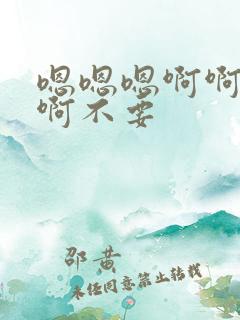 嗯嗯嗯啊啊
啊不要
邵黄
未经同意禁止转载